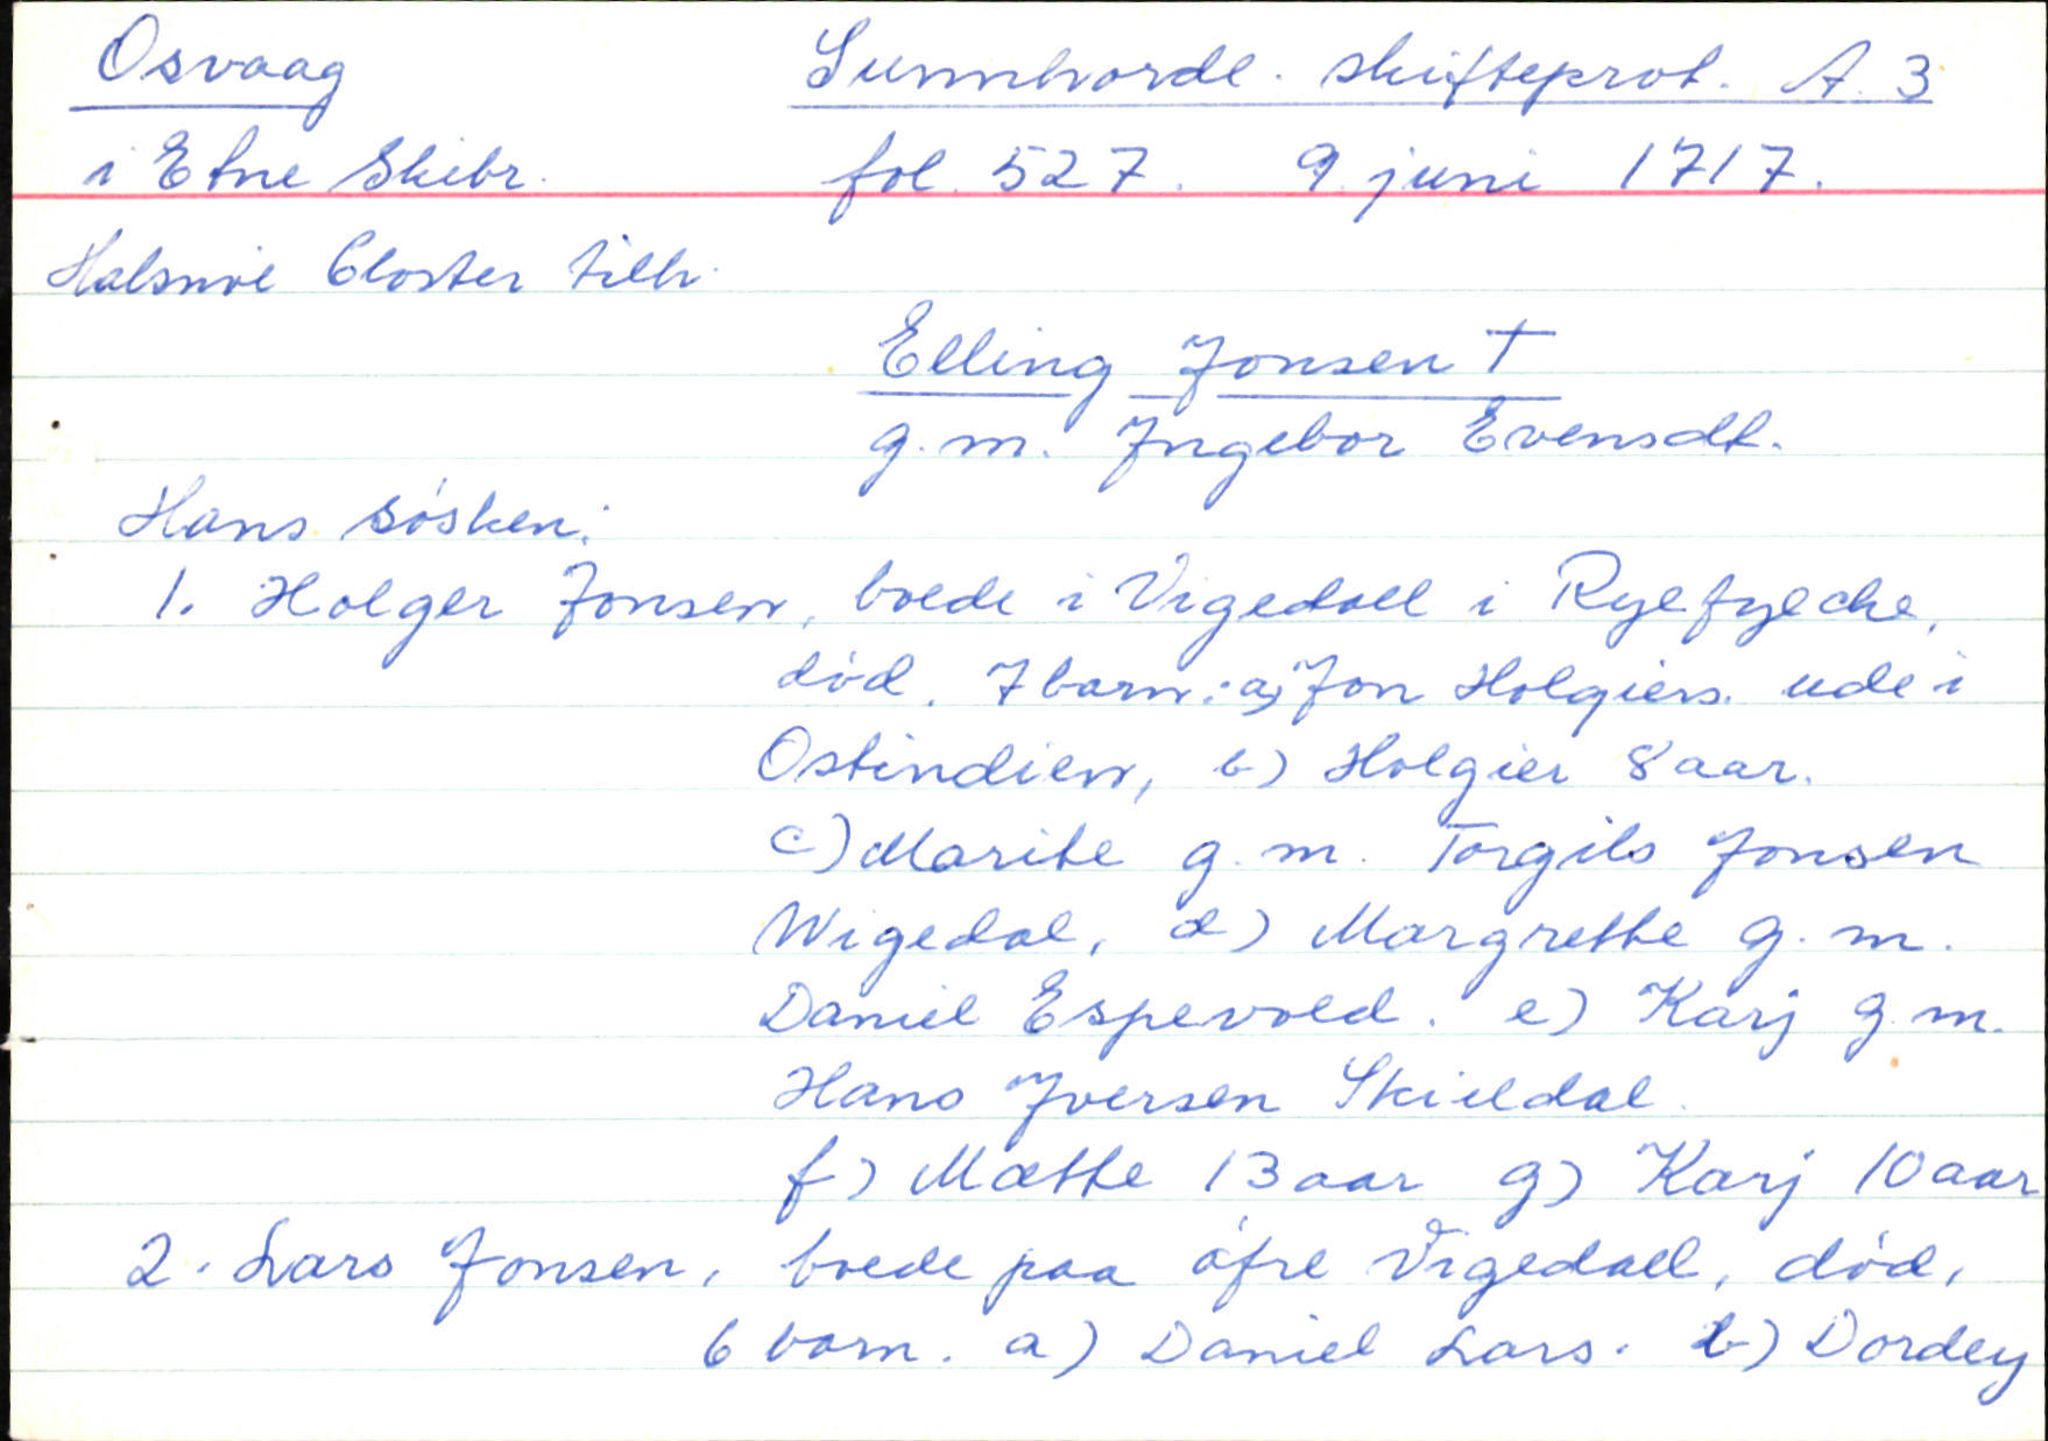 Osvaag Sunnhordl. skifteprot. A. 3
i Etne Skibr. fol. 527. 9 juni 1717.
Halsnøe Closter tilh.
Elling Jonsen †
g.m. Jngebor Evensdt.
Hans søsken:
1. Holger Jonsen, boede i Vigedall i Ryefylche,
død. 7 barn: a) Jon Holgiers. ude i
Ostindien, b) Holgier 8 aar.
c) Marite g.m. Torgils Jonsen
Wigedal, d) Margrethe g.m.
Daniel Espevold. e) Karj g.m.
Hans Jversen Skieldal.
f) Mætte 13 aar g) Karj 10 aar
2. Lars Jonsen, boede paa øfre Vigedall, død,
6 barn. a) Daniel Lars. b) Dordey